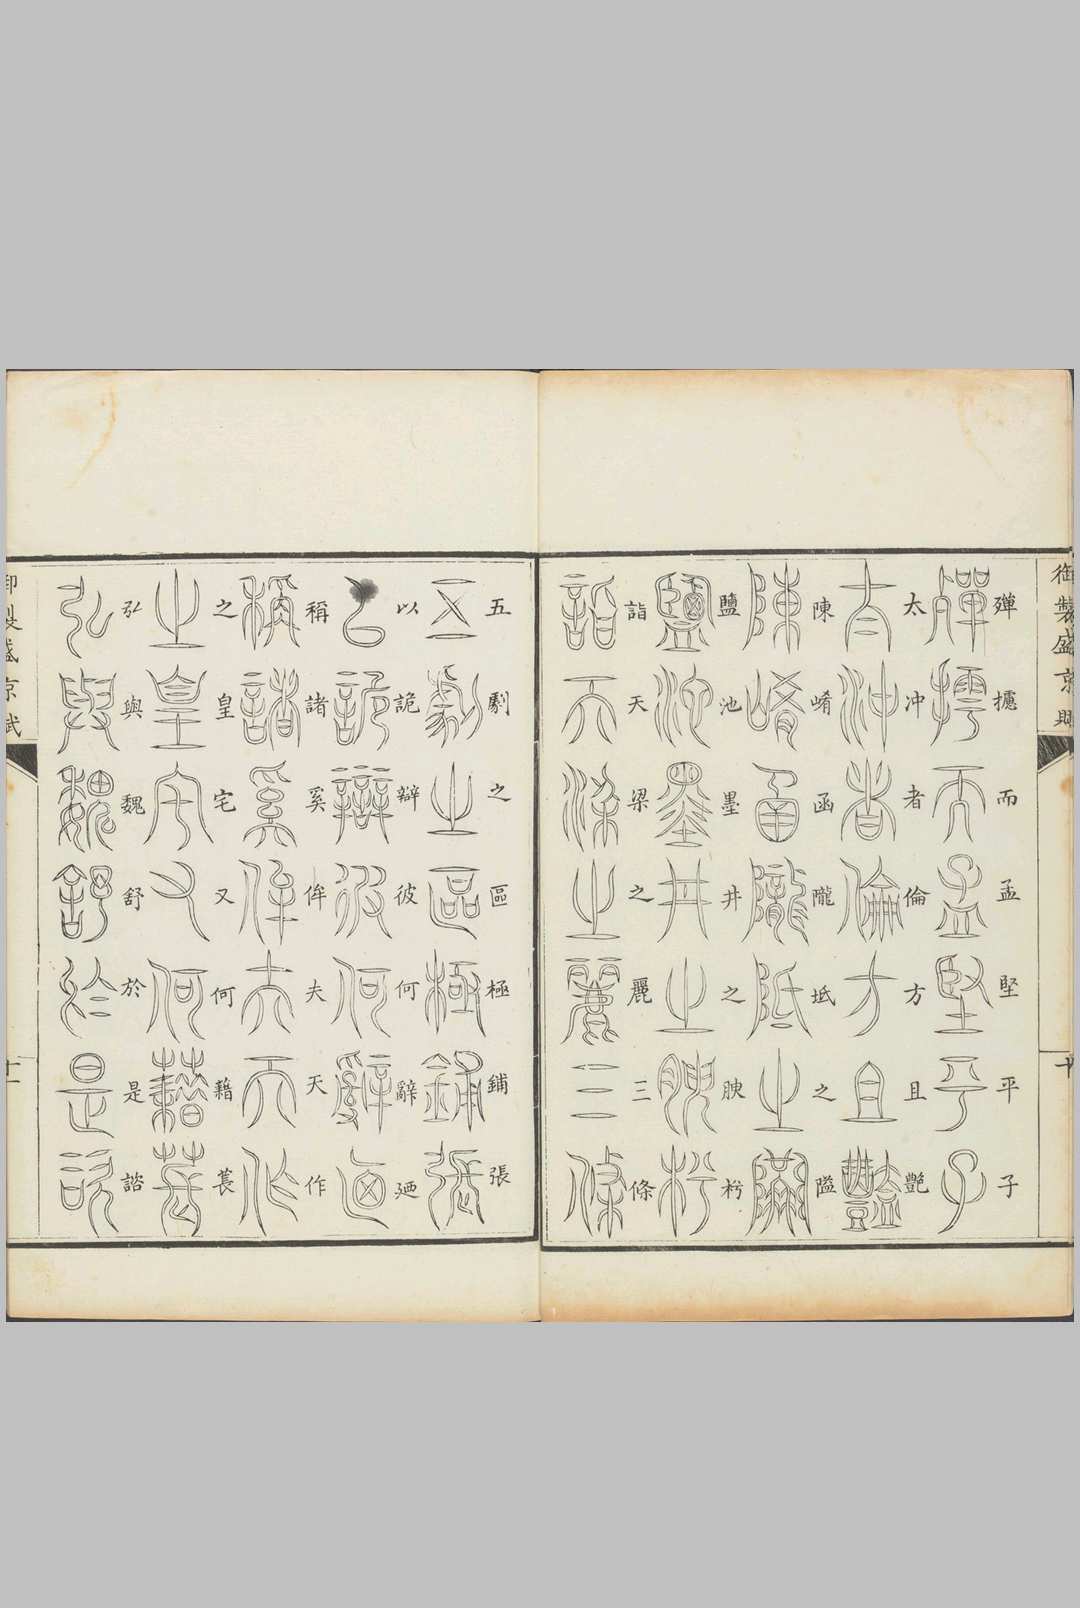 御製盛京賦
十
殫攄而孟堅平子
太冲者倫方且艷
陳崤函隴坻之隘
鹽池墨井之腴枍
詣天梁之麗三條
五劇之區極鋪張
以詭辯彼何辭廼
稱諸奚侔夫天作
之皇宅又何藉萇
弘與魏舒於是諮
御製盛京賦
十一